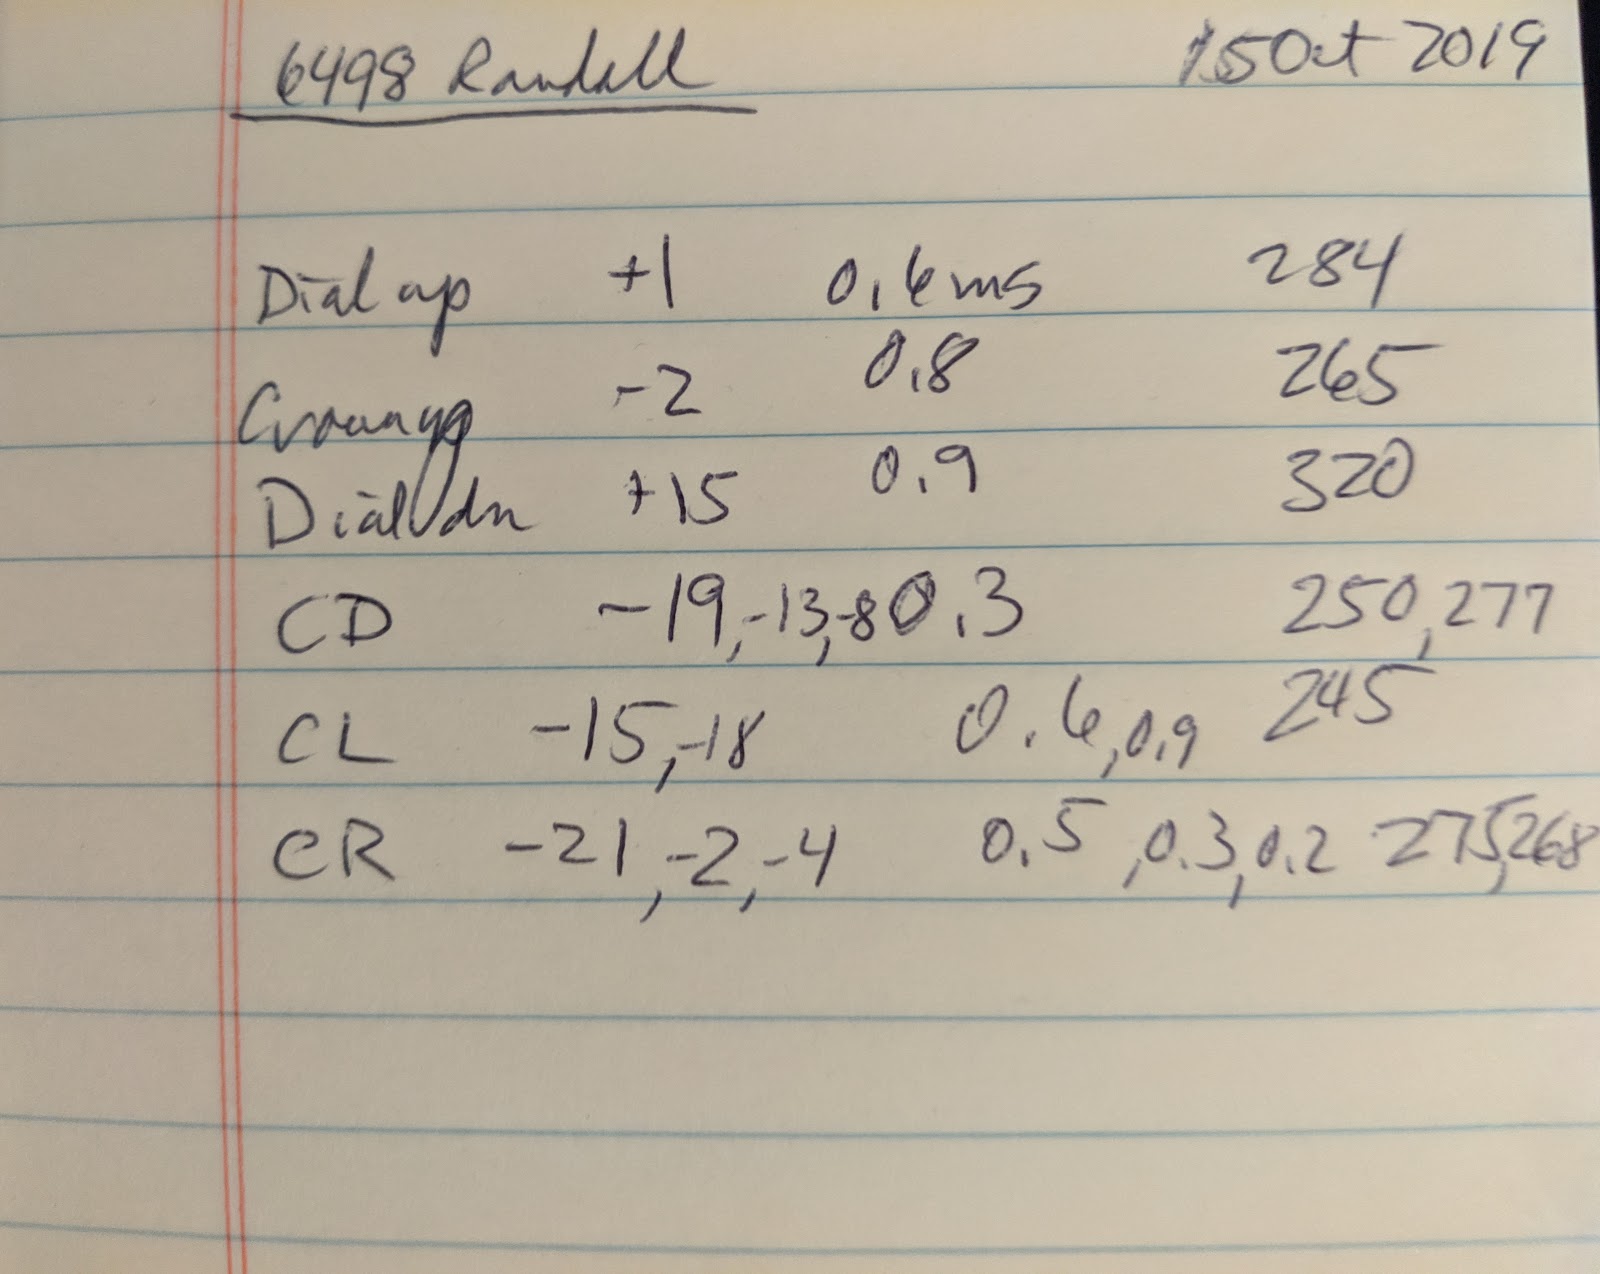 6498 Randall 15 Oct 2019
Dial up +1 0.6ms 284
Crown up -2 0.8 265
Dial dn +15 0.9 320
CD -19, -13, -8 0.3 250, 277
CL -15, -18 0.6, 0.9 245
CR -21, -2, -4 0.5, 0.3, 0.2 275, 268